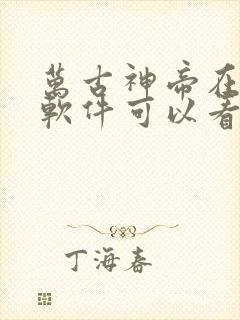 萬古神帝在
軟件可以看
丁海春